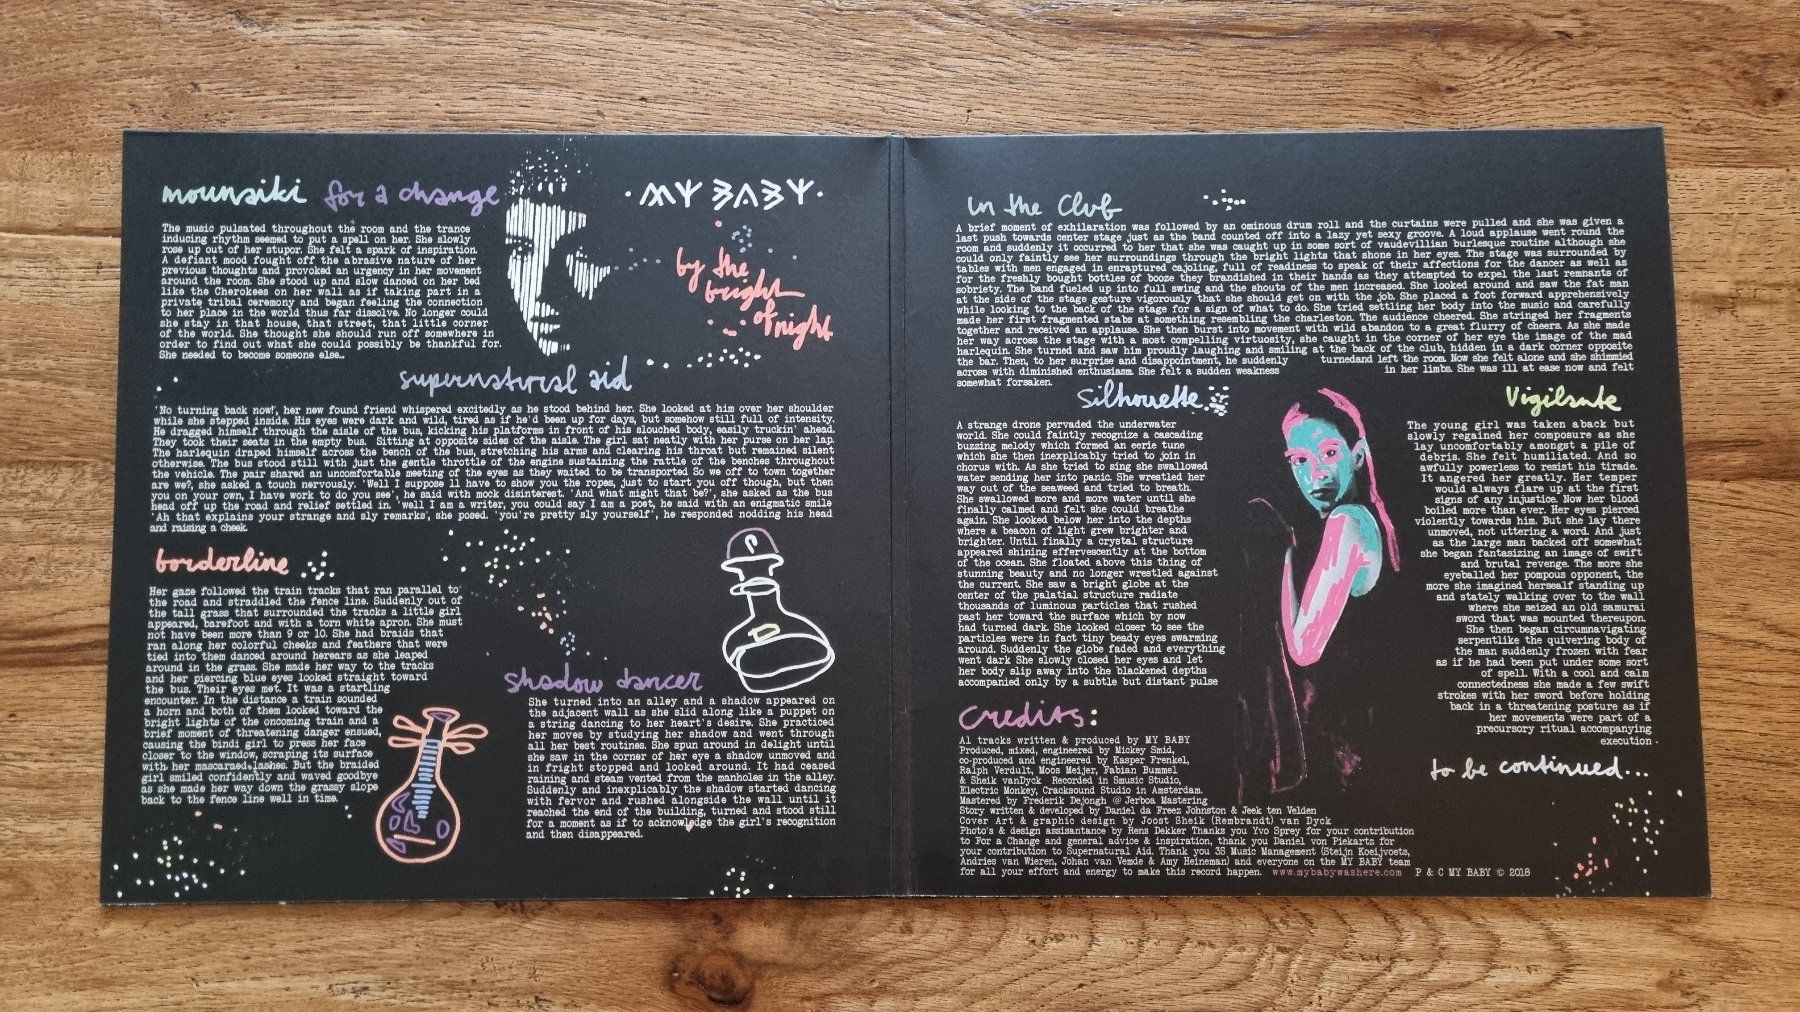 mounaiki for a change
The music pulsated throughout the room and the trance
inducing rhythm seemed to put a spell on her. She slowly
rose up out of her stupor. She felt a spark of inspiration.
A defiant mood fought off the abrasive nature of her
previous thoughts and provoked an urgency in her movement
around the room. She stood up and slow danced on her bed
like the Cherokees on her wall as if taking part in a
private tribal ceremony and began feeling the connection
to her place in the world thus far dissolve. No longer could
she stay in that house, that street, that little corner
of the world. She thought she should run off somewhere in
order to find out what she could possibly be thankful for.
She needed to become someone else...
· MY BABY ·
by the
bright
of night
supernatural aid
'No turning back now!', her new found friend whispered excitedly as he stood behind her. She looked at him over her shoulder
while she stepped inside. His eyes were dark and wild, tired as if he'd been up for days, but somehow still full of intensity.
He dragged himself through the aisle of the bus, kicking his platforms in front of his slouched body, easily truckin' ahead.
They took their seats in the empty bus. Sitting at opposite sides of the aisle. The girl sat neatly with her purse on her lap.
The harlequin draped himself across the bench of the bus, stretching his arms and clearing his throat but remained silent
otherwise. The bus stood still with just the gentle throttle of the engine sustaining the rattle of the benches throughout
the vehicle. The pair shared an uncomfortable meeting of the eyes as they waited to be transported So we off to town together
are we?, she asked a touch nervously. 'Well I suppose ll have to show you the ropes, just to start you off though, but then
you on your own, I have work to do you see', he said with mock disinterest. 'And what might that be?', she asked as the bus
head off up the road and relief settled in. 'well I am a writer, you could say I am a poet, he said with an enigmatic smile
'Ah that explains your strange and sly remarks', she posed. 'you're pretty sly yourself'', he responded nodding his head
and raising a cheek.
borderline
Her gaze followed the train tracks that ran parallel to
the road and straddled the fence line. Suddenly out of
the tall grass that surrounded the tracks a little girl
appeared, barefoot and with a torn white apron. She must
not have been more than 9 or 10. She had braids that
ran along her colorful cheeks and feathers that were
tied into them danced around herears as she leaped
around in the grass. She made her way to the tracks
and her piercing blue eyes looked straight toward
the bus. Their eyes met. It was a startling
encounter. In the distance a train sounded
a horn and both of them looked toward the
bright lights of the oncoming train and a
brief moment of threatening danger ensued,
causing the bindi girl to press her face
closer to the window, scraping its surface
with her mascaraed lashes. But the braided
girl smiled confidently and waved goodbye
as she made her way down the grassy slope
back to the fence line well in time.
shadow dancer
She turned into an alley and a shadow appeared on
the adjacent wall as she slid along like a puppet on
a string dancing to her heart's desire. She practiced
her moves by studying her shadow and went through
all her best routines. She spun around in delight until
she saw in the corner of her eye a shadow unmoved and
in fright stopped and looked around. It had ceased
raining and steam vented from the manholes in the alley.
Suddenly and inexplicably the shadow started dancing
with fervor and rushed alongside the wall until it
reached the end of the building, turned and stood still
for a moment as if to acknowledge the girl's recognition
and then disappeared.
in the club
A brief moment of exhilaration was followed by an ominous drum roll and the curtains were pulled and she was given a
last push towards center stage just as the band counted off into a lazy yet sexy groove. A loud applause went round the
room and suddenly it occurred to her that she was caught up in some sort of vaudevillian burlesque routine although she
could only faintly see her surroundings through the bright lights that shone in her eyes. The stage was surrounded by
tables with men engaged in enraptured cajoling, full of readiness to speak of their affections for the dancer as well as
for the freshly bought bottles of booze they brandished in their hands as they attempted to expel the last remnants of
sobriety. The band fueled up into full swing and the shouts of the men increased. She looked around and saw the fat man
at the side of the stage gesture vigorously that she should get on with the job. She placed a foot forward apprehensively
while looking to the back of the stage for a sign of what to do. She tried settling her body into the music and carefully
made her first fragmented stabs at something resembling the charleston. The audience cheered. She stringed her fragments
together and received an applause. She then burst into movement with wild abandon to a great flurry of cheers. As she made
her way across the stage with a most compelling virtuosity, she caught in the corner of her eye the image of the mad
harlequin. She turned and saw him proudly laughing and smiling at the back of the club, hidden in a dark corner opposite
the bar. Then, to her surprise and disappointment, he suddenly turnedand left the room. Now she felt alone and she shimmied
across with diminished enthusiasm. She felt a sudden weakness in her limbs. She was ill at ease now and felt
somewhat forsaken.
silhouette
A strange drone pervaded the underwater
world. She could faintly recognize a cascading
buzzing melody which formed an eerie tune
which she then inexplicably tried to join in
chorus with. As she tried to sing she swallowed
water sending her into panic. She wrestled her
way out of the seaweed and tried to breath.
She swallowed more and more water until she
finally calmed and felt she could breathe
again. She looked below her into the depths
where a beacon of light grew brighter and
brighter. Until finally a crystal structure
appeared shining effervescently at the bottom
of the ocean. She floated above this thing of
stunning beauty and no longer wrestled against
the current. She saw a bright globe at the
center of the palatial structure radiate
thousands of luminous particles that rushed
past her toward the surface which by now
had turned dark. She looked closer to see the
particles were in fact tiny beady eyes swarming
around. Suddenly the globe faded and everything
went dark She slowly closed her eyes and let
her body slip away into the blackened depths
accompanied only by a subtle but distant pulse
Vigilante
The young girl was taken aback but
slowly regained her composure as she
lay uncomfortably amongst a pile of
debris. She felt humiliated. And so
awfully powerless to resist his tirade.
It angered her greatly. Her temper
would always flare up at the first
signs of any injustice. Now her blood
boiled more than ever. Her eyes pierced
violently towards him. But she lay there
unmoved, not uttering a word. And just
as the large man backed off somewhat
she began fantasizing an image of swift
and brutal revenge. The more she
eyeballed her pompous opponent, the
more she imagined herseelf standing up
and stately walking over to the wall
where she seized an old samurai
sword that was mounted thereupon.
She then began circumnavigating
serpentlike the quivering body of
the man suddenly frozen with fear
as if he had been put under some sort
of spell. With a cool and calm
connectedness she made a few swift
strokes with her sword before holding
back in a threatening posture as if
her movements were part of a
precursory ritual accompanying
execution.
to be continued...
Credits:
Al tracks written & produced by MY BABY
Produced, mixed, engineered by Mickey Smid,
co-produced and engineered by Kasper Frenkel,
Ralph Verdult, Moos Meijer, Fabian Bummel
& Sheik vanDyck Recorded in Smusic Studio,
Electric Monkey, Cracksound Studio in Amsterdam.
Mastered by Frederik Dejongh @ Jerboa Mastering
Story written & developed by Daniel da Freez Johnston & Jeek ten Velden
Cover Art & graphic design by Joost Sheik (Rembrandt) van Dyck
Photo's & design assisantance by Rens Dekker Thanks you Yvo Sprey for your contribution
to For a Change and general advice & inspiration, thank you Daniel von Piekartz for
your contribution to Supernatural Aid. Thank you 3S Music Management (Steijn Koeijvoets,
Andries van Wieren, Johan van Vemde & Amy Heineman) and everyone on the MY BABY team
for all your effort and energy to make this record happen. www.mybabywashere.com P & C MY BABY © 2018